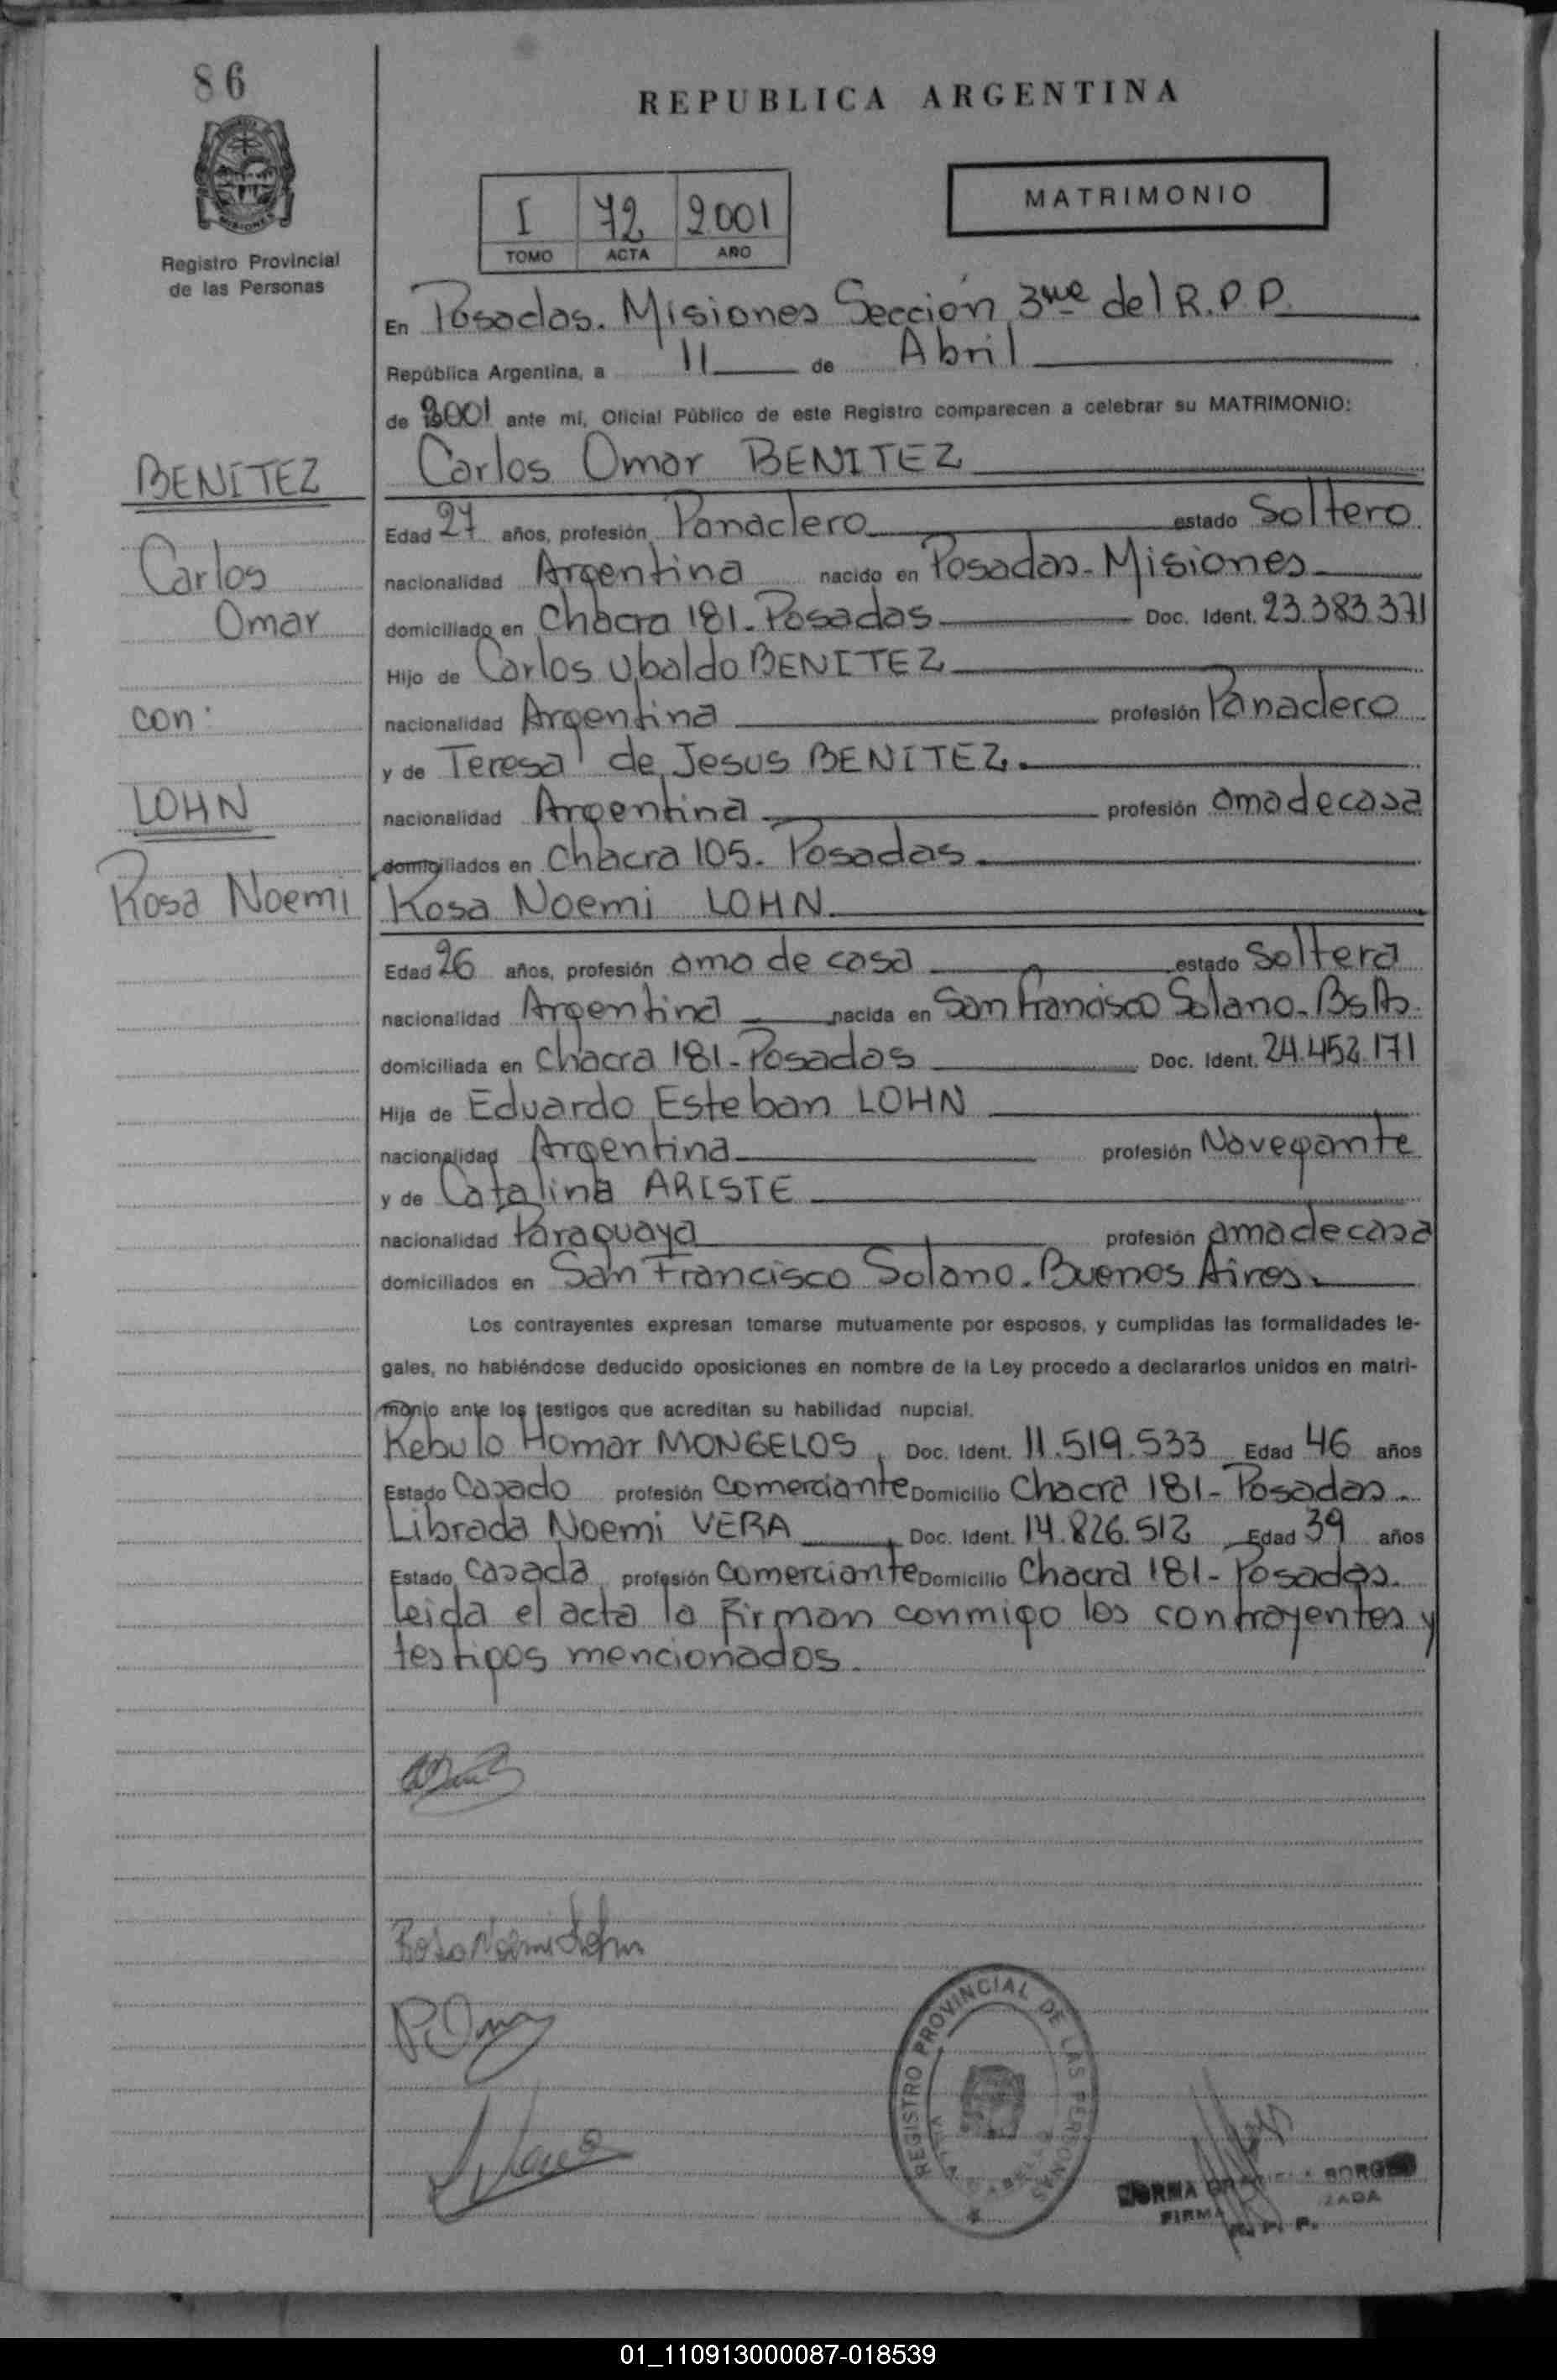 86
REPUBLICA ARGENTINA
MATRIMONIO
I 72 2001
TOMO ACTA AÑO
Registro Provincial
de las Personas
En Posadas. Misiones Sección 3ra del R.P.P.
República Argentina, a 11 de Abril
de 2001 ante mí, Oficial Público de este Registro comparecen a celebrar su MATRIMONIO:
BENITEZ
Carlos Omar BENITEZ
Edad 27 años, profesión Panadero estado Soltero
Carlos
nacionalidad Argentina nacido en Posadas-Misiones
Omar
domiciliado en Chacra 181-Posadas Doc. Ident. 23.383.371
Hijo de Carlos Ubaldo BENITEZ
con:
nacionalidad Argentina profesión Panadero
y de Teresa de Jesus BENITEZ.
LOHN
nacionalidad Argentina profesión ama de casa
domiciliados en Chacra 105. Posadas
Rosa Noemi
Rosa Noemi LOHN
Edad 26 años, profesión ama de casa estado Soltera
nacionalidad Argentina nacida en San Francisco Solano-BsAs.
domiciliada en Chacra 181-Posadas Doc. Ident. 24.452.171
Hija de Eduardo Esteban LOHN
nacionalidad Argentina profesión Navegante
y de Catalina ARISTE
nacionalidad Paraguaya profesión ama de casa
domiciliados en San Francisco Solano-Buenos Aires.
Los contrayentes expresan tomarse mutuamente por esposos, y cumplidas las formalidades le-
gales, no habiéndose deducido oposiciones en nombre de la Ley procedo a declararlos unidos en matri-
monio ante los testigos que acreditan su habilidad nupcial.
Rebulo Homar MONGELOS, Doc. Ident. 11.519.533 Edad 46 años
Estado Casado profesión Comerciante Domicilio Chacra 181-Posadas.
Librada Noemi VERA, Doc. Ident. 14.826.512 Edad 39 años
Estado Casada, profesión Comerciante Domicilio Chacra 181-Posadas.
Leida el acta la firman conmigo los contrayentes y
testigos mencionados.
Rosa Noemi Lohn
REGISTRO PROVINCIAL DE LAS PERSONAS
NORMA GRACIELA BORGES
FIRMA
R. P. P.
01_110913000087-018539